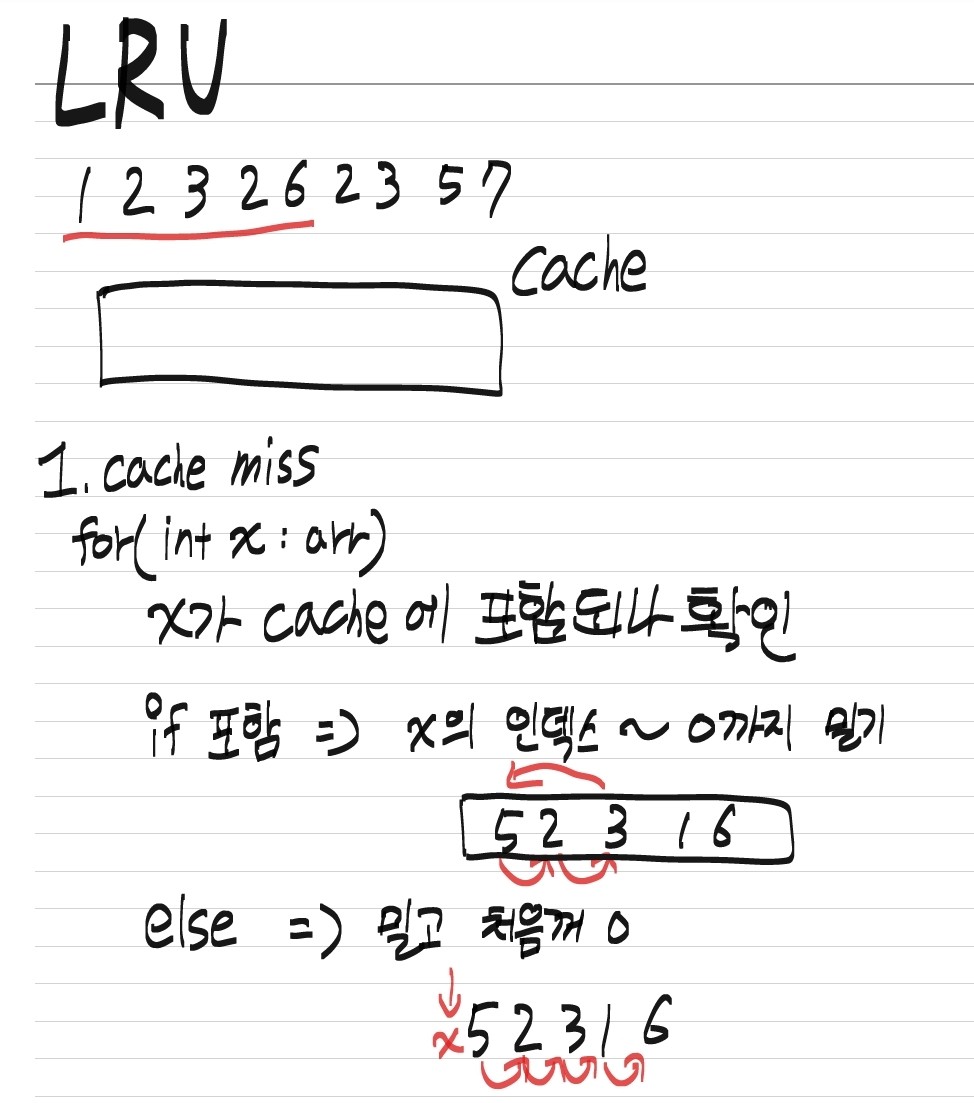 LRU
1 2 3 2 6 2 3 5 7
Cache
1. cache miss
for( int x : arr)
x가 cache에 포함되나 확인
if 포함 => x의 인덱스 ~ 0까지 밀기
5 2 3 1 6
else => 밀고 처음꺼 0
x 5 2 3 1 6